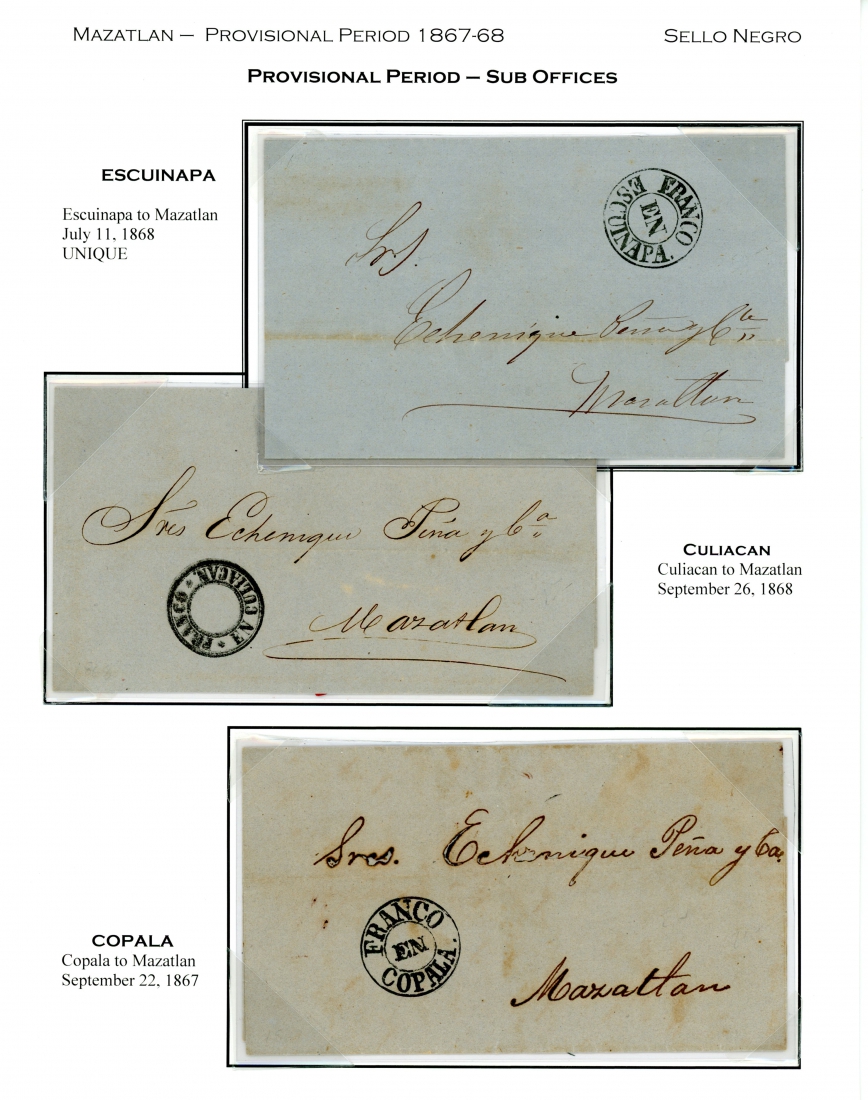 MAZATLAN – PROVISIONAL PERIOD 1867-68 SELLO NEGRO
PROVISIONAL PERIOD – SUB OFFICES
ESCUINAPA
Escuinapa to Mazatlan
July 11, 1868
UNIQUE
FRANCO
EN
ESCUINAPA.
Srs.
Echenique Peña y Cia
Mazatlan
Sres Echenique Peña y Ca
FRANCO * EN CULIACAN. *
Mazatlan
CULIACAN
Culiacan to Mazatlan
September 26, 1868
Sres. Echenique Peña y Ca.
FRANCO
EN
COPALA.
Mazatlan
COPALA
Copala to Mazatlan
September 22, 1867